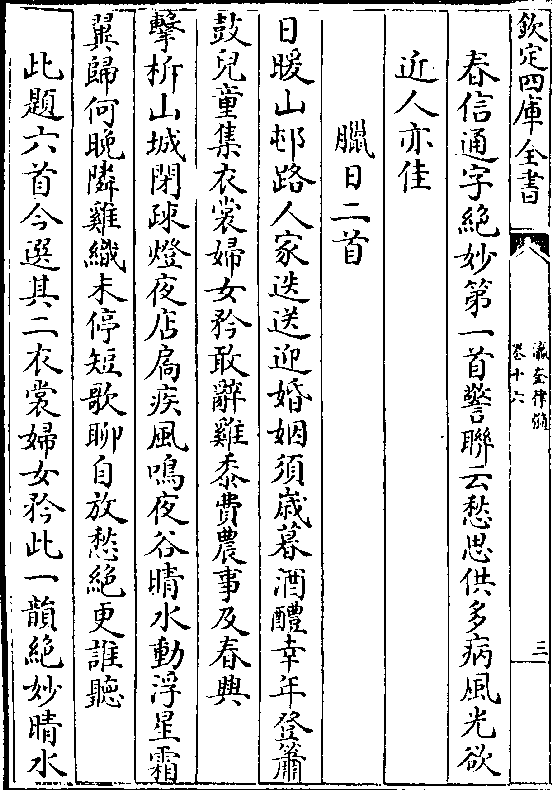 欽定四庫全書
瀛奎律髓
卷十六
三
春信通字絶妙第一首警聯云愁思供多病風光欲
近人亦佳
臘日二首
日暖山邨路人家迭送迎婚姻須歲暮酒醴幸年登簫
鼓兒童集衣裳婦女矜敢辭雞黍費農事及春興
擊柝山城閉疎燈夜店扃疾風鳴夜谷晴水動浮星霜
翼歸何晚隣雞織未停短歌聊自放愁絶更誰聽
此題六首今選其二衣裳婦女矜此一韻絶妙晴水